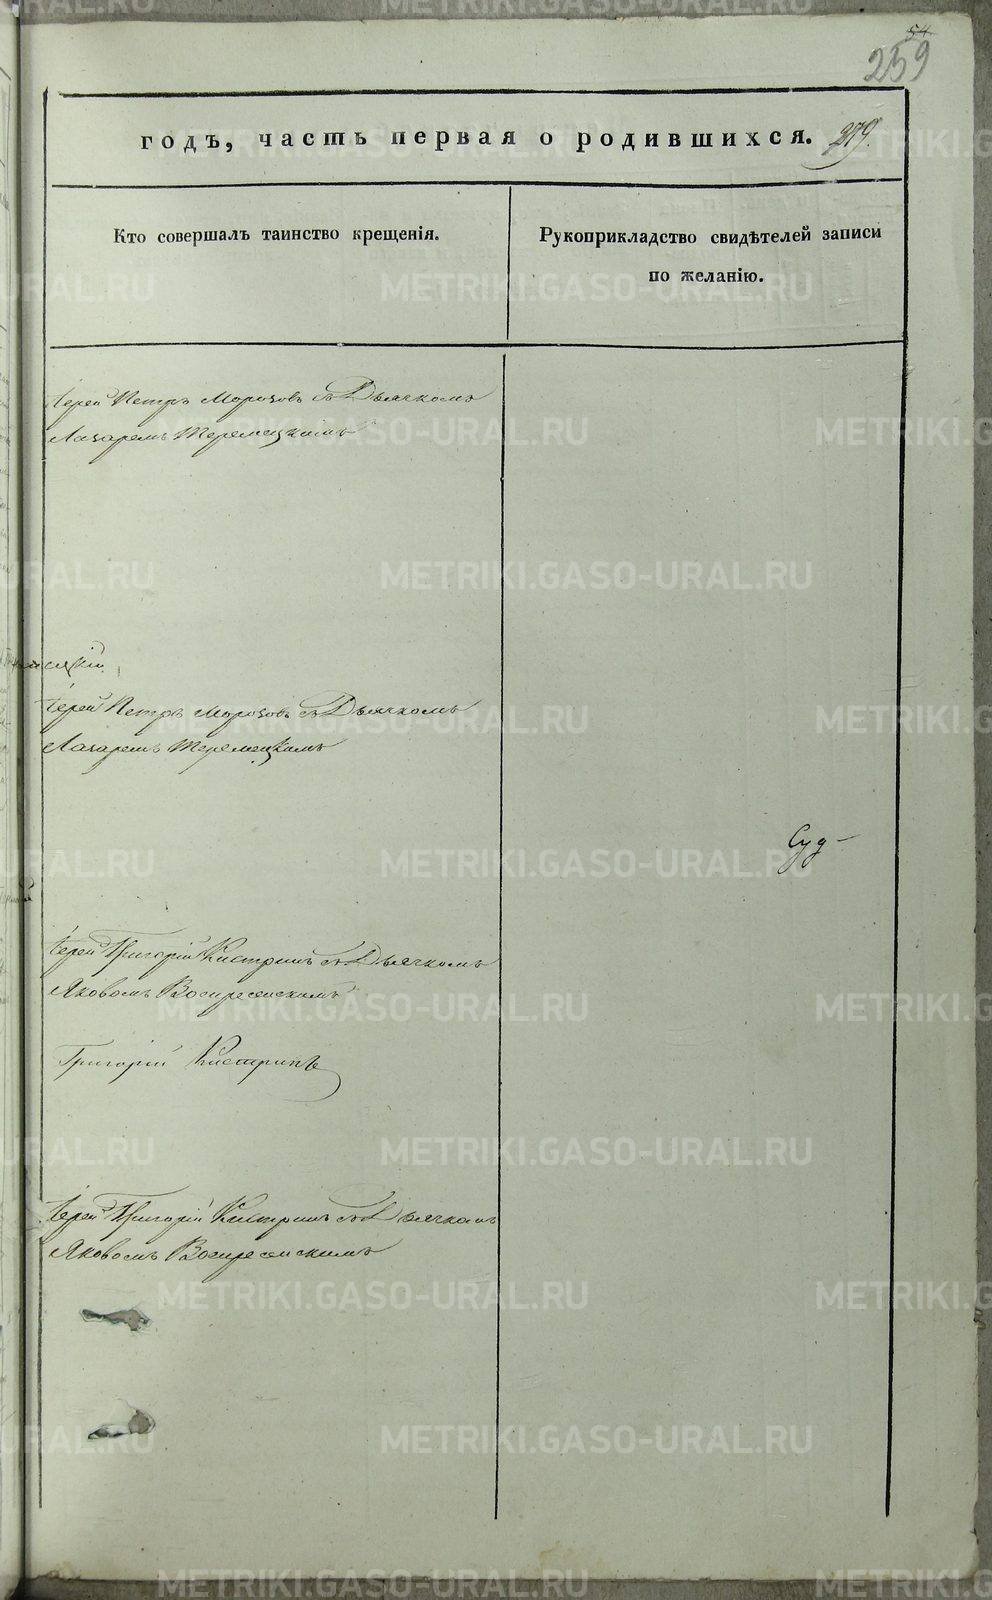 54
259
годъ, часть первая о родившихся. 279.
Кто совершалъ таинство крещенія.
Рукоприкладство свидѣтелей записи
по желанію.
Іерей Петръ Морозовъ съ Дьячкомъ
Лазаремъ Теремецкимъ
Іерей Петръ Морозовъ съ Дьячкомъ
Лазаремъ Теремецкимъ
Суд-
Іерей Григорій Кистринъ съ Дьячкомъ
Яковомъ Воскресенскимъ
Григорій Кистринъ
Іерей Григорій Кистринъ съ Дьячкомъ
Яковомъ Воскресенскимъ
METRIKI.GASO-URAL.RU